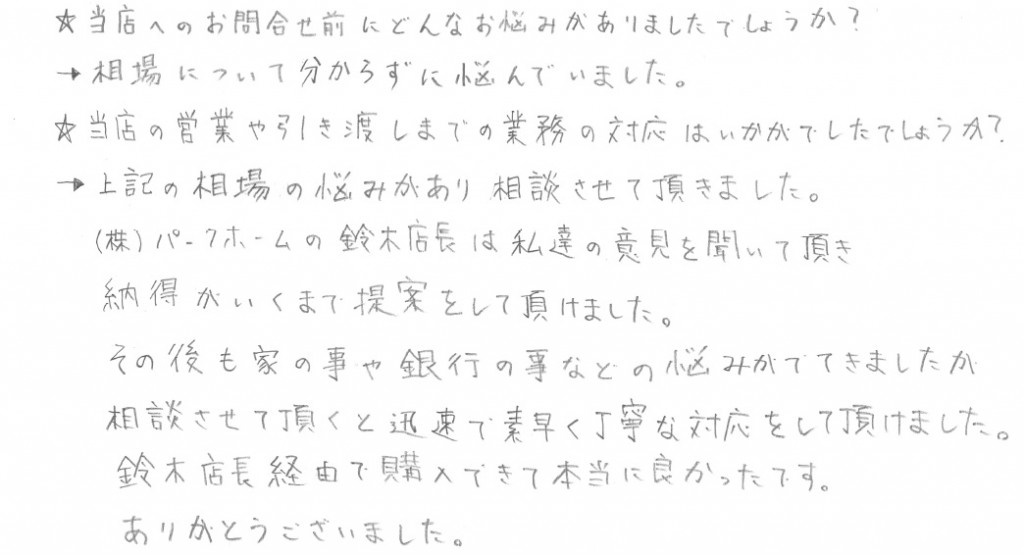 ☆当店へのお問合せ前にどんなお悩みがありましたでしょうか?
→相場について分からずに悩んでいました。
☆当店の営業や引き渡しまでの業務の対応はいかがでしたでしょうか?
→上記の相場の悩みがあり相談させて頂きました。
(株)パークホームの鈴木店長は私達の意見を聞いて頂き
納得がいくまで提案をして頂けました。
その後も家の事や銀行の事などの悩みがでてきましたが
相談させて頂くと迅速で素早く丁寧な対応をして頂けました。
鈴木店長経由で購入できて本当に良かったです。
ありがとうございました。